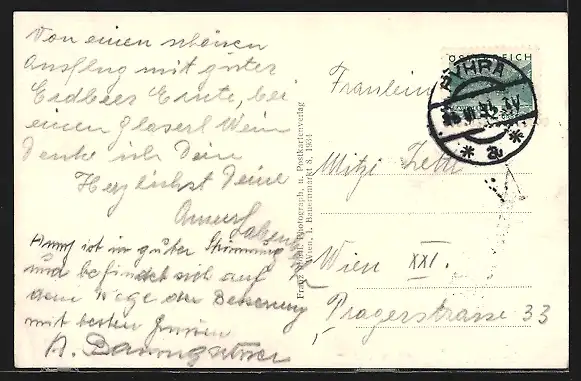 Von einen schönen
Ausflug mit guter
Erdbeer Ernte, bei
einen Glaserl Wein
denke ich Dein
Herzlichst Deine
Anny ist in guter Stimmung
und befindet sich auf
dem Wege der Besserung
mit besten Grüssen
Fräulein
Mitzi
Wien XXI.
Pragerstrasse 33
ÖSTERREICH
PYHRA
* a *
Photograph. u. Postkartenverlag
Wien, I. Bauernmarkt 8, 1934